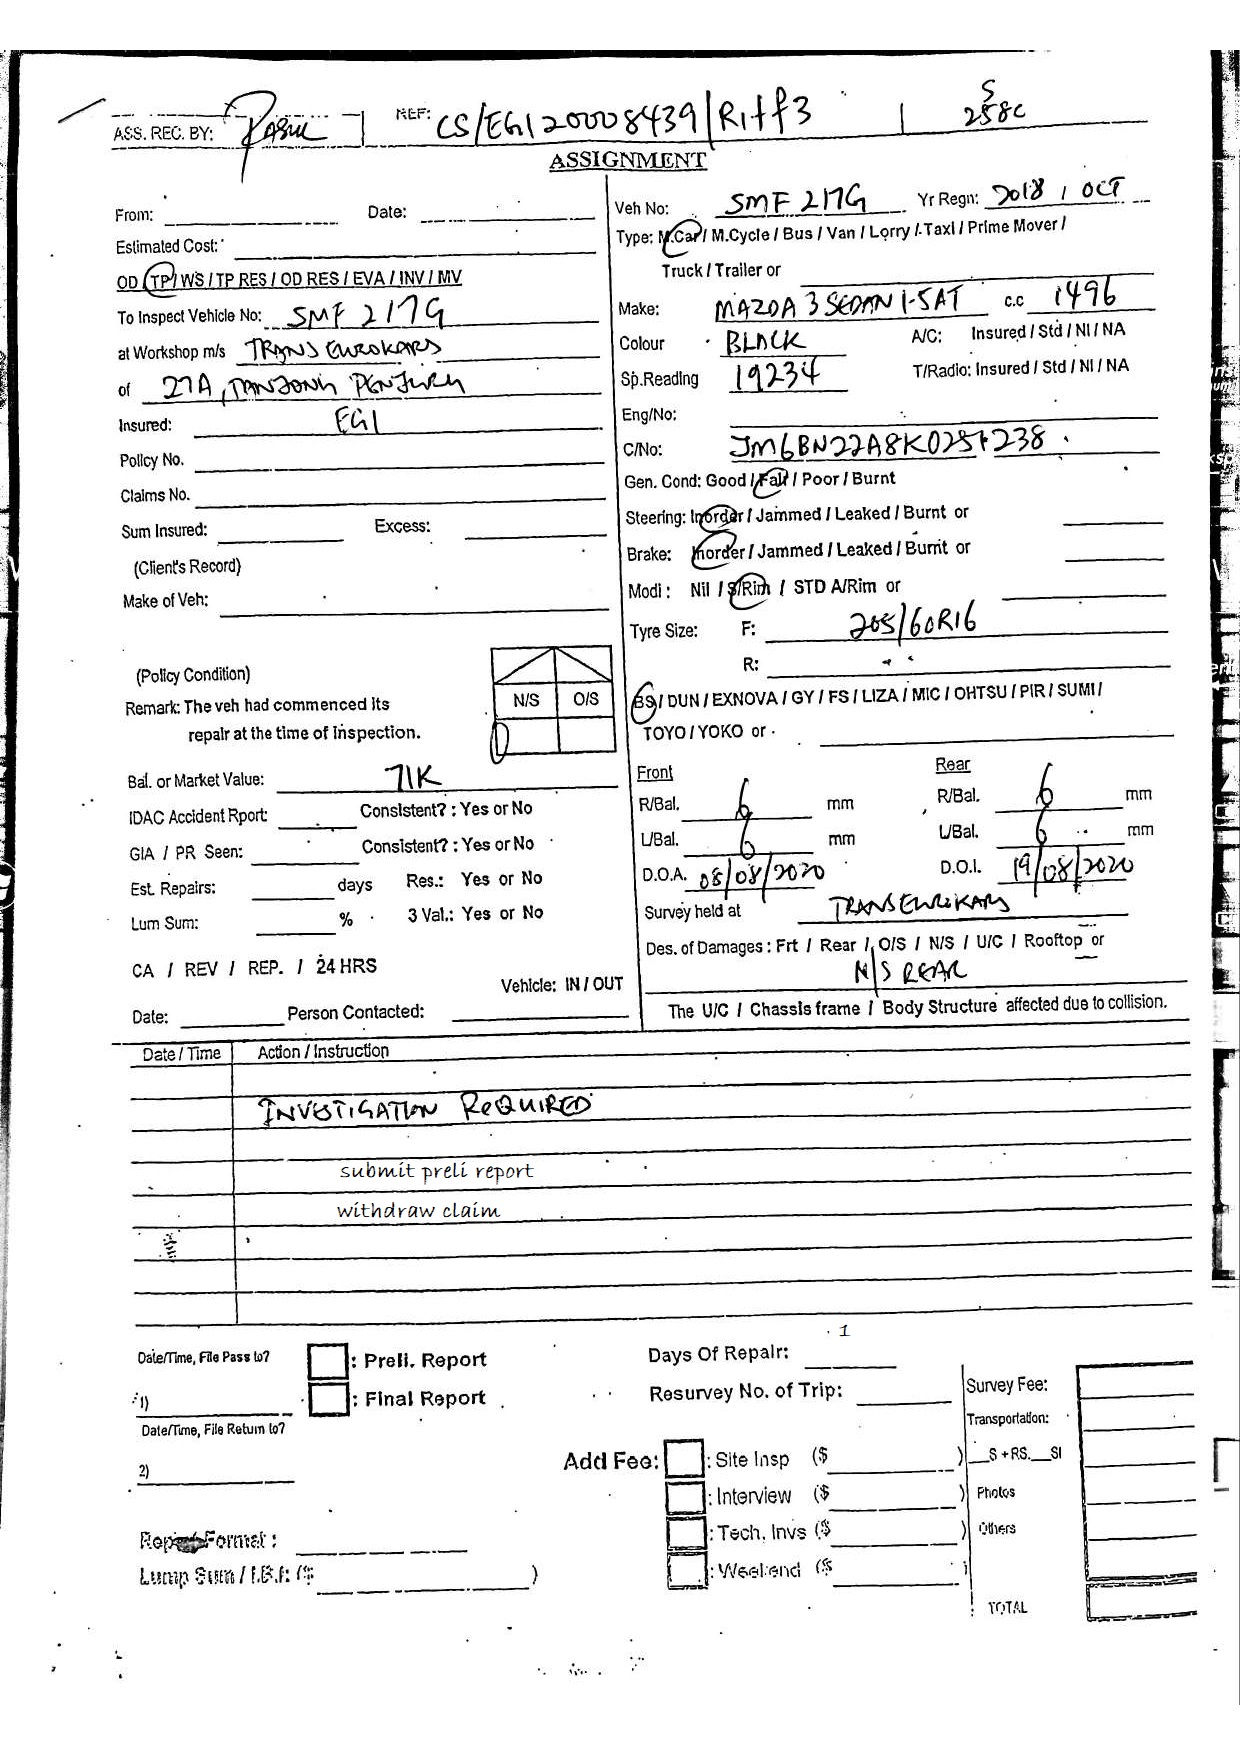 ASS. REC. BY:
REF: CS/EGI20008439/R1tf3
S
258C
ASSIGNMENT
From: Date:
Estimated Cost:
OD / TP / WS / TP RES / OD RES / EVA / INV / MV
To Inspect Vehicle No: SMF 217G
at Workshop m/s TRANS EUROKARS
of 27A, TANJONG PENJURU
Insured: EGI
Policy No.
Claims No.
Sum Insured: Excess:
(Client's Record)
Make of Veh:
(Policy Condition)
Remark: The veh had commenced its
repair at the time of inspection.
N/S O/S
Bal. or Market Value: 71K
IDAC Accident Rport: Consistent? : Yes or No
GIA / PR Seen: Consistent? : Yes or No
Est. Repairs: days Res.: Yes or No
Lum Sum: % 3 Val.: Yes or No
CA / REV / REP. / 24 HRS
Vehicle: IN / OUT
Date: Person Contacted:
Veh No: SMF 217G Yr Regn: 2018 / OCT
Type: M.Car / M.Cycle / Bus / Van / Lorry / Taxi / Prime Mover /
Truck / Trailer or
Make: MAZDA 3 SEDAN 1.5AT c.c 1496
Colour BLACK A/C: Insured / Std / NI / NA
Sp.Reading 19234 T/Radio: Insured / Std / NI / NA
Eng/No:
C/No:
Gen. Cond: Good / Fair / Poor / Burnt
Steering: Inorder / Jammed / Leaked / Burnt or
Brake: Inorder / Jammed / Leaked / Burnt or
Modi : Nil / S/Rim / STD A/Rim or
Tyre Size: F: 205/60R16
R:
BS / DUN / EXNOVA / GY / FS / LIZA / MIC / OHTSU / PIR / SUMI /
TOYO / YOKO or
Front Rear
R/Bal. 6 mm R/Bal. 6 mm
L/Bal. 6 mm L/Bal. 6 mm
D.O.A. 08/08/2020 D.O.I. 19/08/2020
Survey held at TRANS EUROKARS
Des. of Damages : Frt / Rear / O/S / N/S / U/C / Rooftop or
N/S REAR
The U/C / Chassis frame / Body Structure affected due to collision.
Date / Time Action / Instruction
INVESTIGATION REQUIRED
submit preli report
withdraw claim
Date/Time, File Pass to?
1)
Date/Time, File Return to?
2)
: Preli. Report
: Final Report
Days Of Repair: 1
Resurvey No. of Trip:
Add Fee: : Site Insp ($ )
: Interview ($ )
: Tech. Invs ($ )
: Weekend ($ )
Survey Fee:
Transportation:
S + RS. SI
Photos
Others
TOTAL
Report Format :
Lump Sum / I.B.I: ($ )